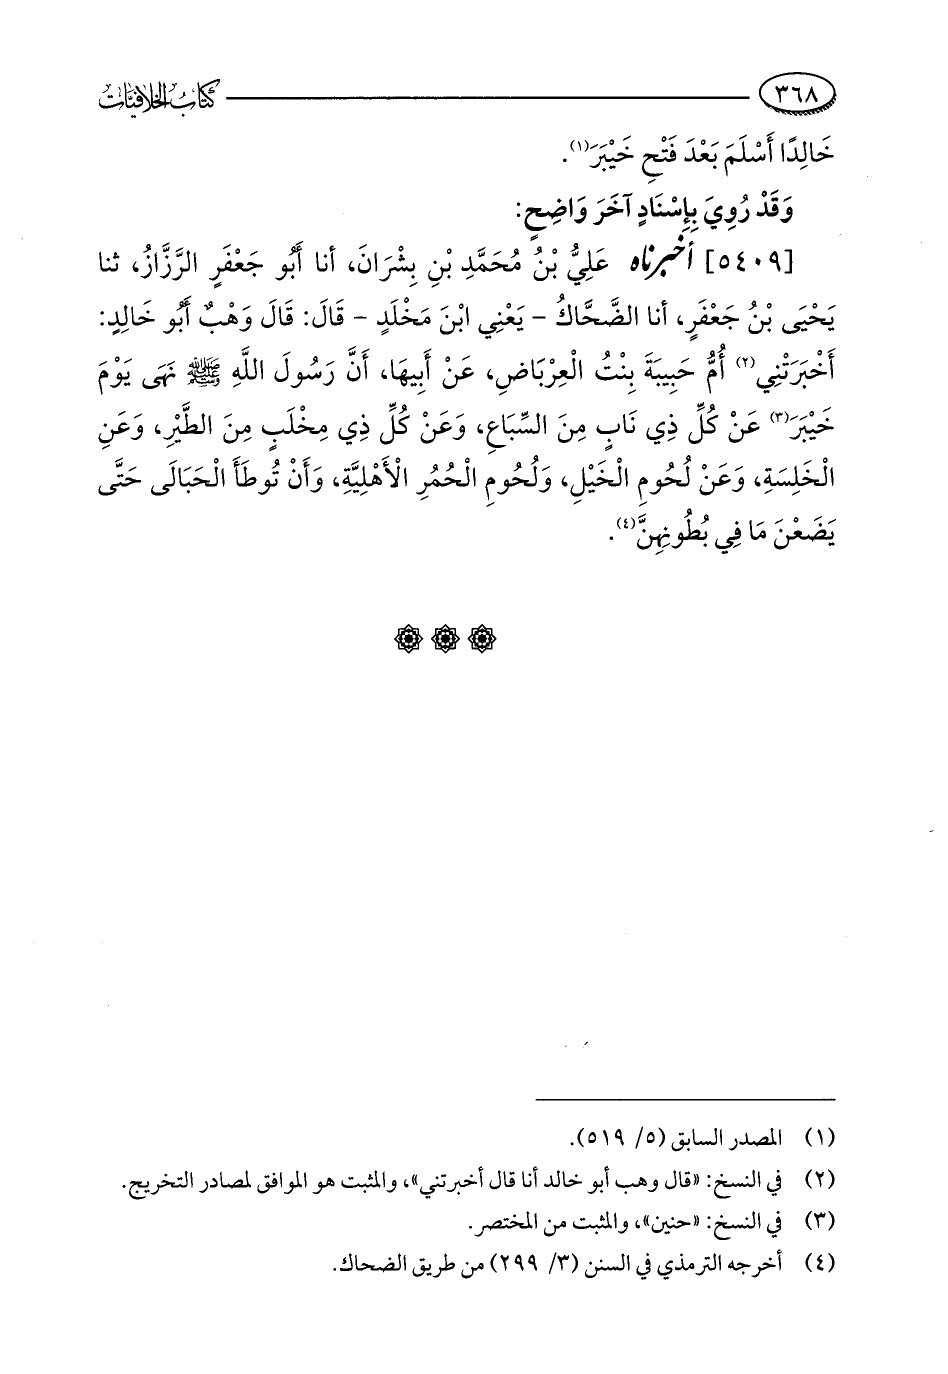 كتاب الخلافيات ٣٦٨
خَالِدًا أَسْلَمَ بَعْدَ فَتْحِ خَيْبَرَ(١).
وَقَدْ رُوِيَ بِإِسْنَادٍ آخَرَ وَاضِحٍ:
[٥٤٠٩] أخبرناه عَلِيُّ بْنُ مُحَمَّدِ بْنِ بِشْرَانَ، أنا أَبُو جَعْفَرٍ الرَّزَّازُ، ثنا
يَحْيَى بْنُ جَعْفَرٍ، أنا الضَّحَّاكُ - يَعْنِي ابْنَ مَخْلَدٍ - قَالَ: قَالَ وَهْبٌ أَبُو خَالِدٍ:
أَخْبَرَتْنِي(٢) أُمُّ حَبِيبَةَ بِنْتُ الْعِرْبَاضِ، عَنْ أَبِيهَا، أَنَّ رَسُولَ اللَّهِ ﷺ نَهَى يَوْمَ
خَيْبَرَ(٣) عَنْ كُلِّ ذِي نَابٍ مِنَ السِّبَاعِ، وَعَنْ كُلِّ ذِي مِخْلَبٍ مِنَ الطَّيْرِ، وَعَنِ
الْخَلِسَةِ، وَعَنْ لُحُومِ الْخَيْلِ، وَلُحُومِ الْحُمُرِ الْأَهْلِيَّةِ، وَأَنْ تُوطَأَ الْحَبَالَى حَتَّى
يَضَعْنَ مَا فِي بُطُونِهِنَّ(٤).
(١) المصدر السابق (٥/ ٥١٩).
(٢) في النسخ: «قال وهب أبو خالد أنا قال أخبرتني»، والمثبت هو الموافق لمصادر التخريج.
(٣) في النسخ: «حنين»، والمثبت من المختصر.
(٤) أخرجه الترمذي في السنن (٣/ ٢٩٩) من طريق الضحاك.